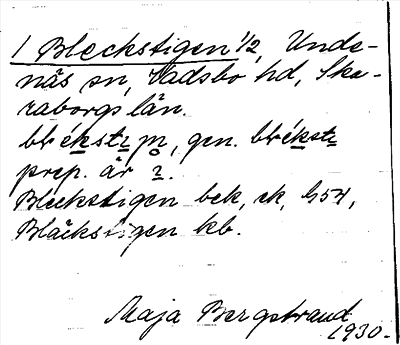 1 Bleckstigen 1/2, Unde-
näs sn, Vadsbo hd, Ska-
raborgs län.
blékstɩ m, gen. blékstɩ
prep. är ɩ.
Bleckstigen bek, ek, G54,
Bläckstigen kb.
Maja Bergstrand
1930.